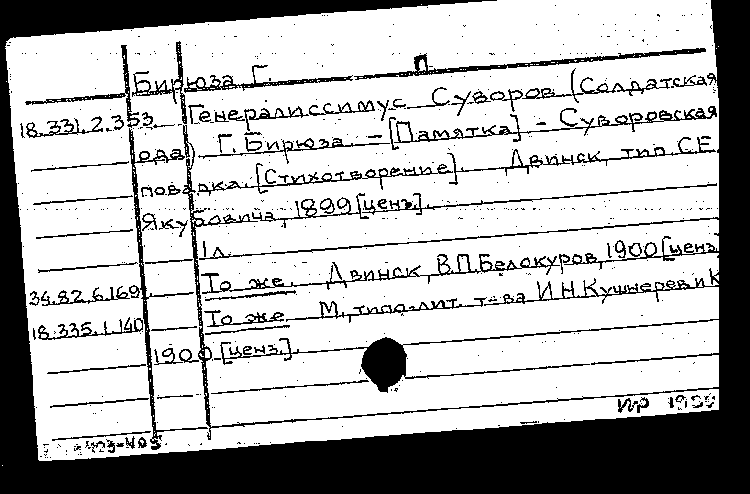 П
Бирюза Г.
18.331.2.353. Генералиссимус Суворов (Солдатская
ода) Г. Бирюза. – [Памятка] – Суворовская
повадка. [Стихотворение]. Двинск, тип. С.Е.
Якубовича, 1899 [ценз.].
1 л.
34.82.6.169. То же. Двинск, В.П. Белокуров, 1900 [ценз
18.335.1.140 То же М., типо-лит. т-ва И.Н. Кушнерев и К
1900 [ценз.].
403-405